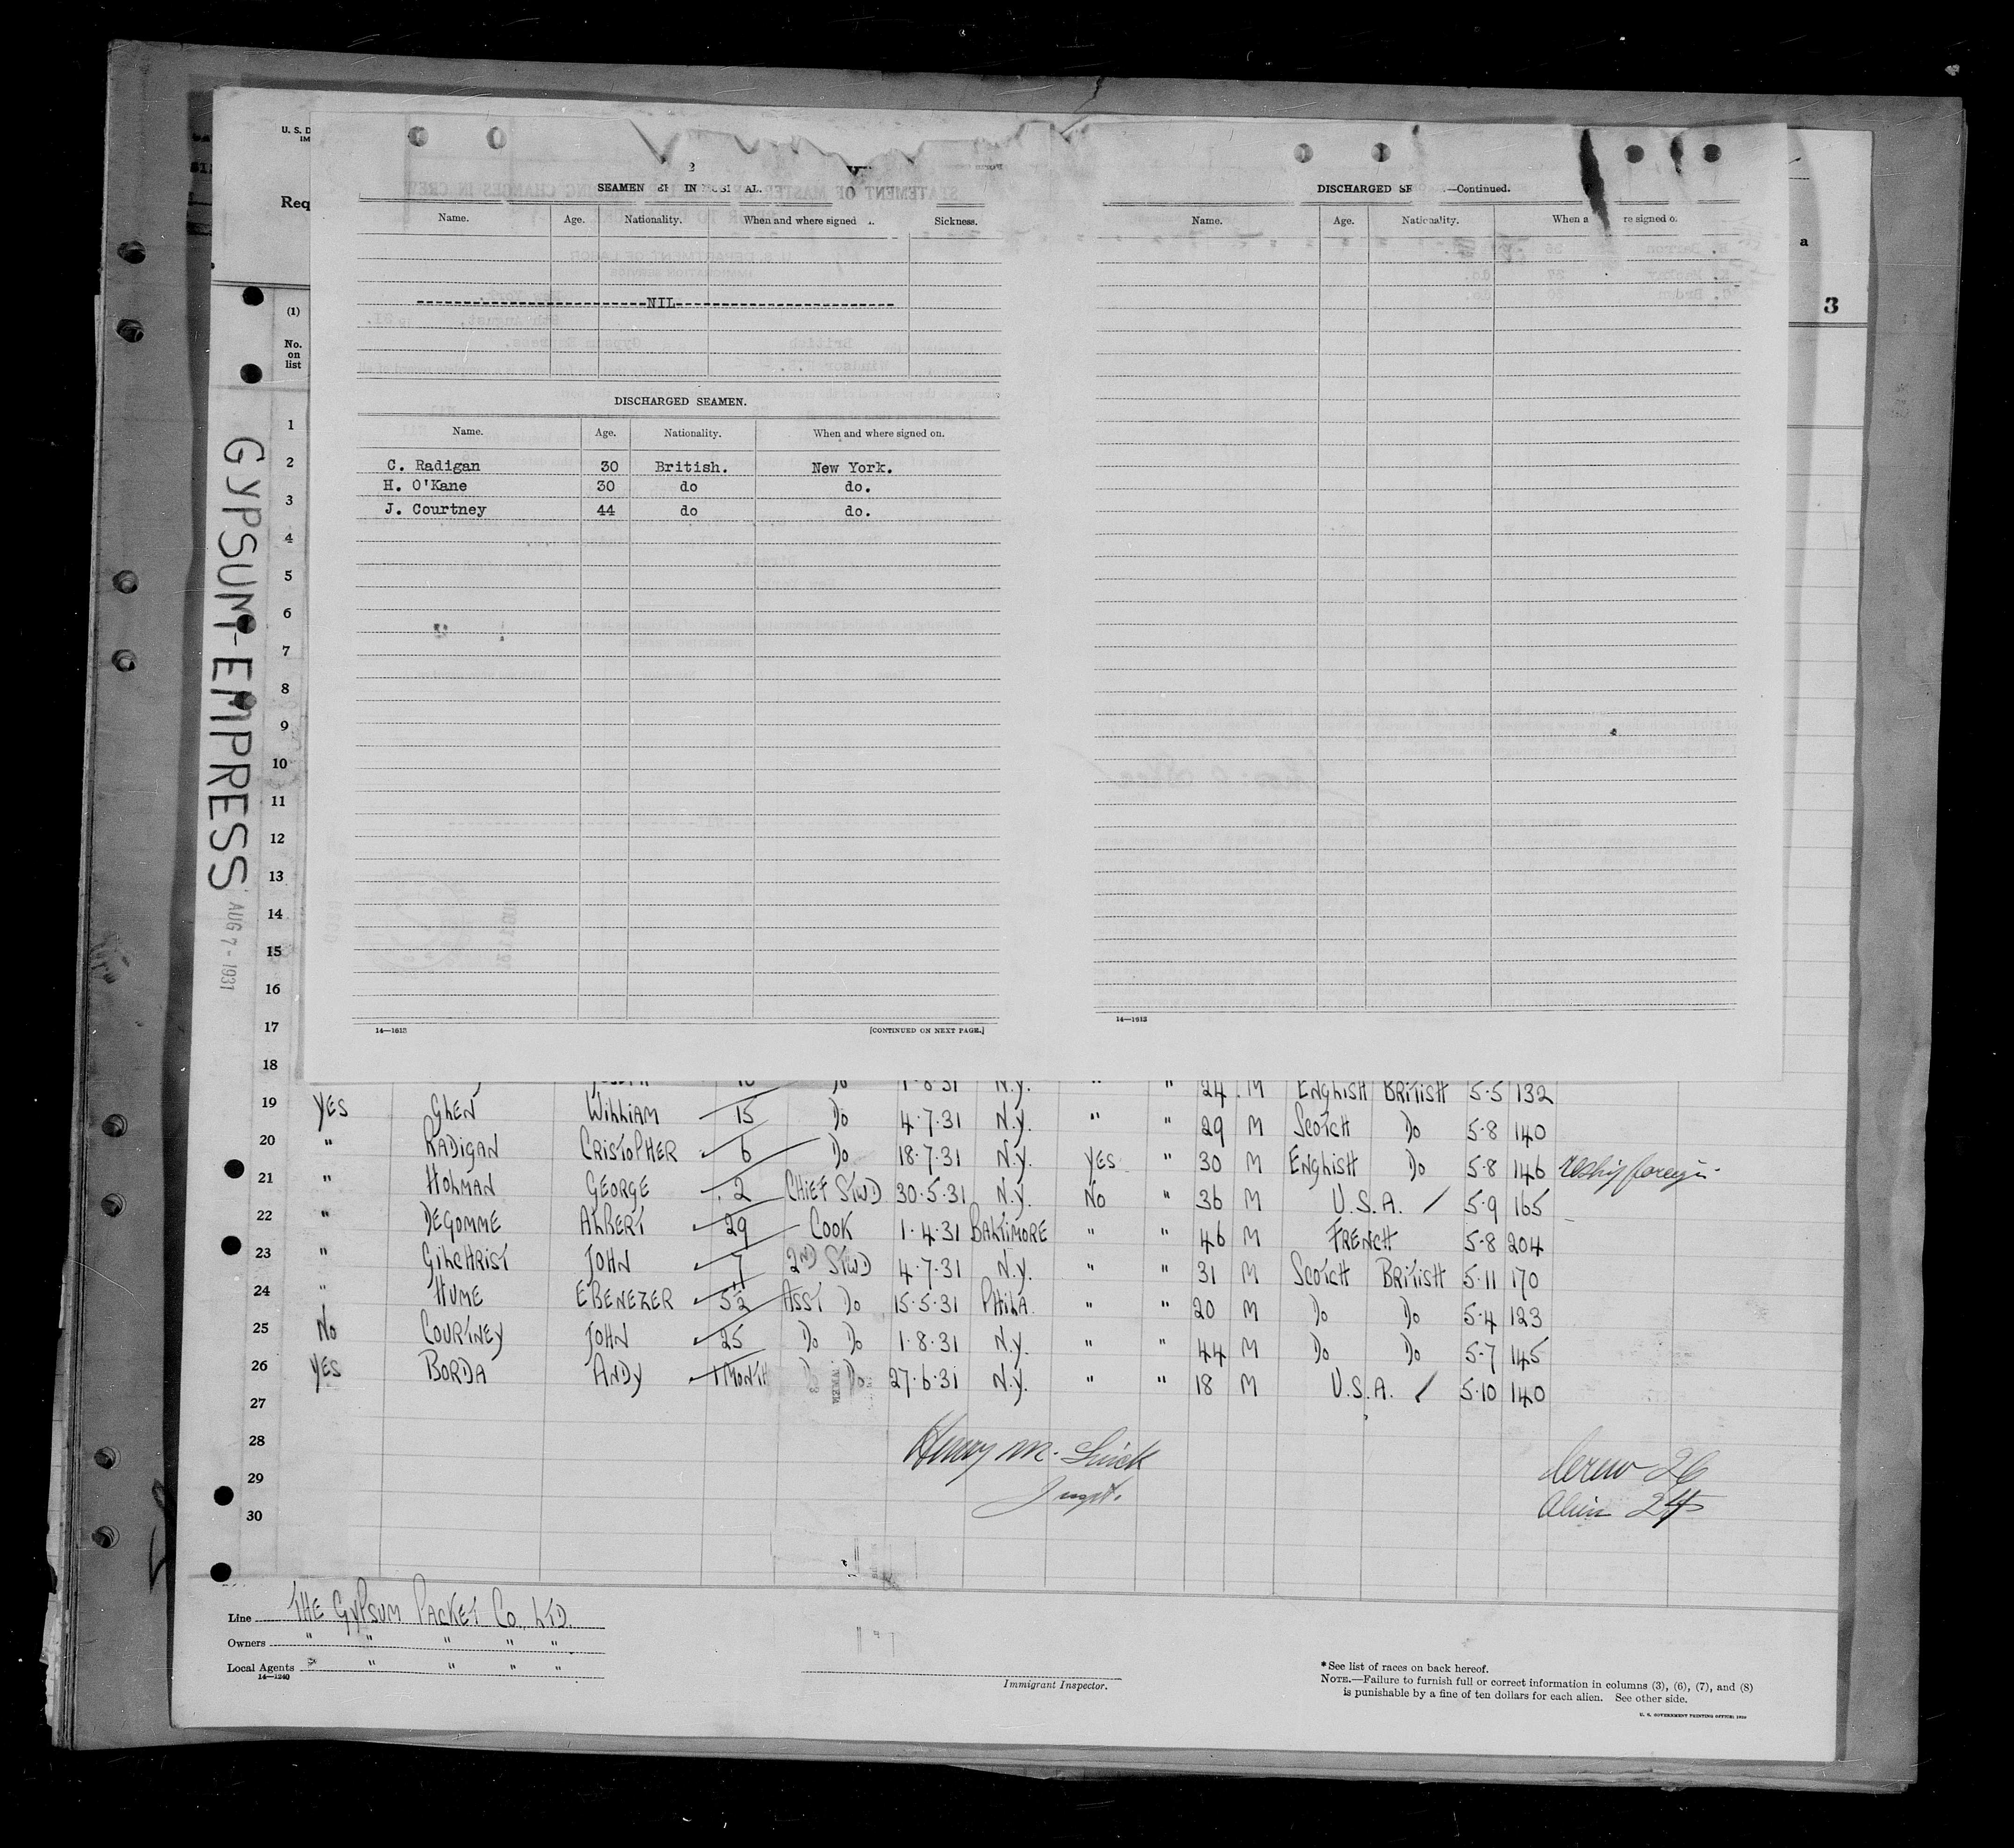 U. S. D
IM
Req
(1)
No.
on
list
GYPSUM-EMPRESS AUG 7 - 1931
SEAMEN IN AL.
Name. Age. Nationality. When and where signed Sickness.
NIL
DISCHARGED SEAMEN.
Name. Age. Nationality. When and where signed on.
C. Radigan 30 British. New York.
H. O'Kane 30 do do.
J. Courtney 44 do do.
14—1613 [CONTINUED ON NEXT PAGE.]
DISCHARGED SE —Continued.
Name. Age. Nationality. When a re signed o
14—1613
a
3
1
2
3
4
5
6
7
8
9
10
11
12
13
14
15
16
17
18 Do 1·8·31 N.Y. " " 24 M ENGLISH BRITISH 5·5 132
19 YES GLEN WILLIAM 15 Do 4·7·31 N.Y. " " 29 M SCOTCH Do 5·8 140
20 " RADIGAN CRISTOPHER 6 Do 18·7·31 N.Y. YES " 30 M ENGLISH Do 5·8 146 reship foreign
21 " HOLMAN GEORGE 2 CHIEF STWD 30·5·31 N.Y. NO " 36 M U.S.A. 5·9 165
22 " DEGOMME ALBERT 29 COOK 1·4·31 BALTIMORE " " 46 M FRENCH 5·8 204
23 " GILCHRIST JOHN 7 2ND STWD 4·7·31 N.Y. " " 31 M SCOTCH BRITISH 5·11 170
24 " HUME EBENEZER 5½ ASST Do 15·5·31 PHILA. " " 20 M Do Do 5·4 123
25 No COURTNEY JOHN 25 Do Do 1·8·31 N.Y. " " 44 M Do Do 5·7 145
26 YES BORDA ANDY 1 MONTH Do Do 27·6·31 N.Y. " " 18 M U.S.A. 5·10 140
27
28
29
30
Henry M.
Inspt.
Crew 26
Alien 24
Line THE GYPSUM PACKET CO. LTD.
Owners " " " " "
Local Agents " " " " "
14—1240
Immigrant Inspector.
*See list of races on back hereof.
NOTE.—Failure to furnish full or correct information in columns (3), (6), (7), and (8)
is punishable by a fine of ten dollars for each alien. See other side.
U. S. GOVERNMENT PRINTING OFFICE: 1930